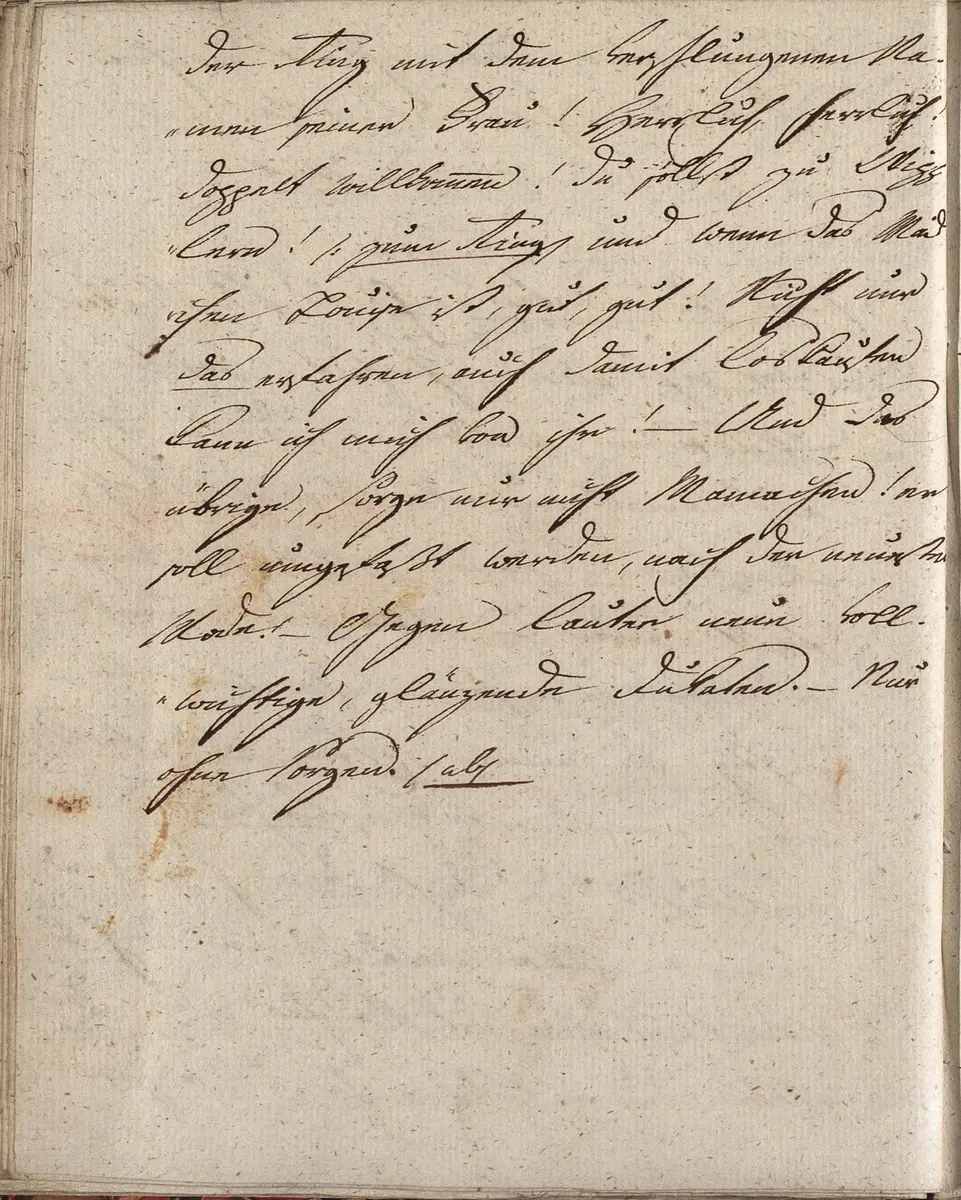 der Ring mit dem verschlungenen Na-
"men seiner Frau! Herrlich, herrlich!
doppelt willkommen! Du sollst zu
"lern! /: zum Ring und wenn das Mäd
"chen Louise ist, gut, gut! Nicht nur
das erfahren, auch damit loskaufen
kann ich mich von ihr! — Und das
übrige, sorge nur nicht Mamachen! er
soll umgefaßt werden, nach der neuesten
Mode! — Gegen lauter neue voll-
"wichtige, glänzende Dukaten. — Nur
ohne Sorgen. /ab/